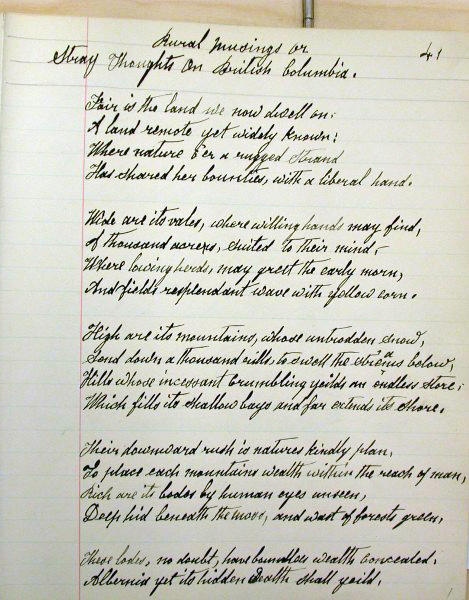 Rural Musings or
41
Stray Thoughts On British Columbia.
Fair is the land we now dwell on:
A land remote yet widely known:
Where nature o'er a rugged strand
Has shared her bounties, with a liberal hand.
Wide are its vales, where willing hands may find,
A thousand acres, suited to their mind,
Where lowing herds, may greet the early morn,
And fields resplendant wave with yellow corn.
High are its mountains, whose untrodden snow,
Send down a thousand rills, to swell the streams below,
Hills whose incessant crumbling yeilds an endless store;
Which fills its shallow bays and far extends its shore.
Their downward rush is natures kindly plan,
To place each mountains wealth within the reach of man,
Rich are its lodes by human eyes unseen,
Deep hid beneath the moss, and wast of forests green,
These lodes, no doubt, have boundless wealth concealed,
Albernia yet its hidden wealth shall yeild.